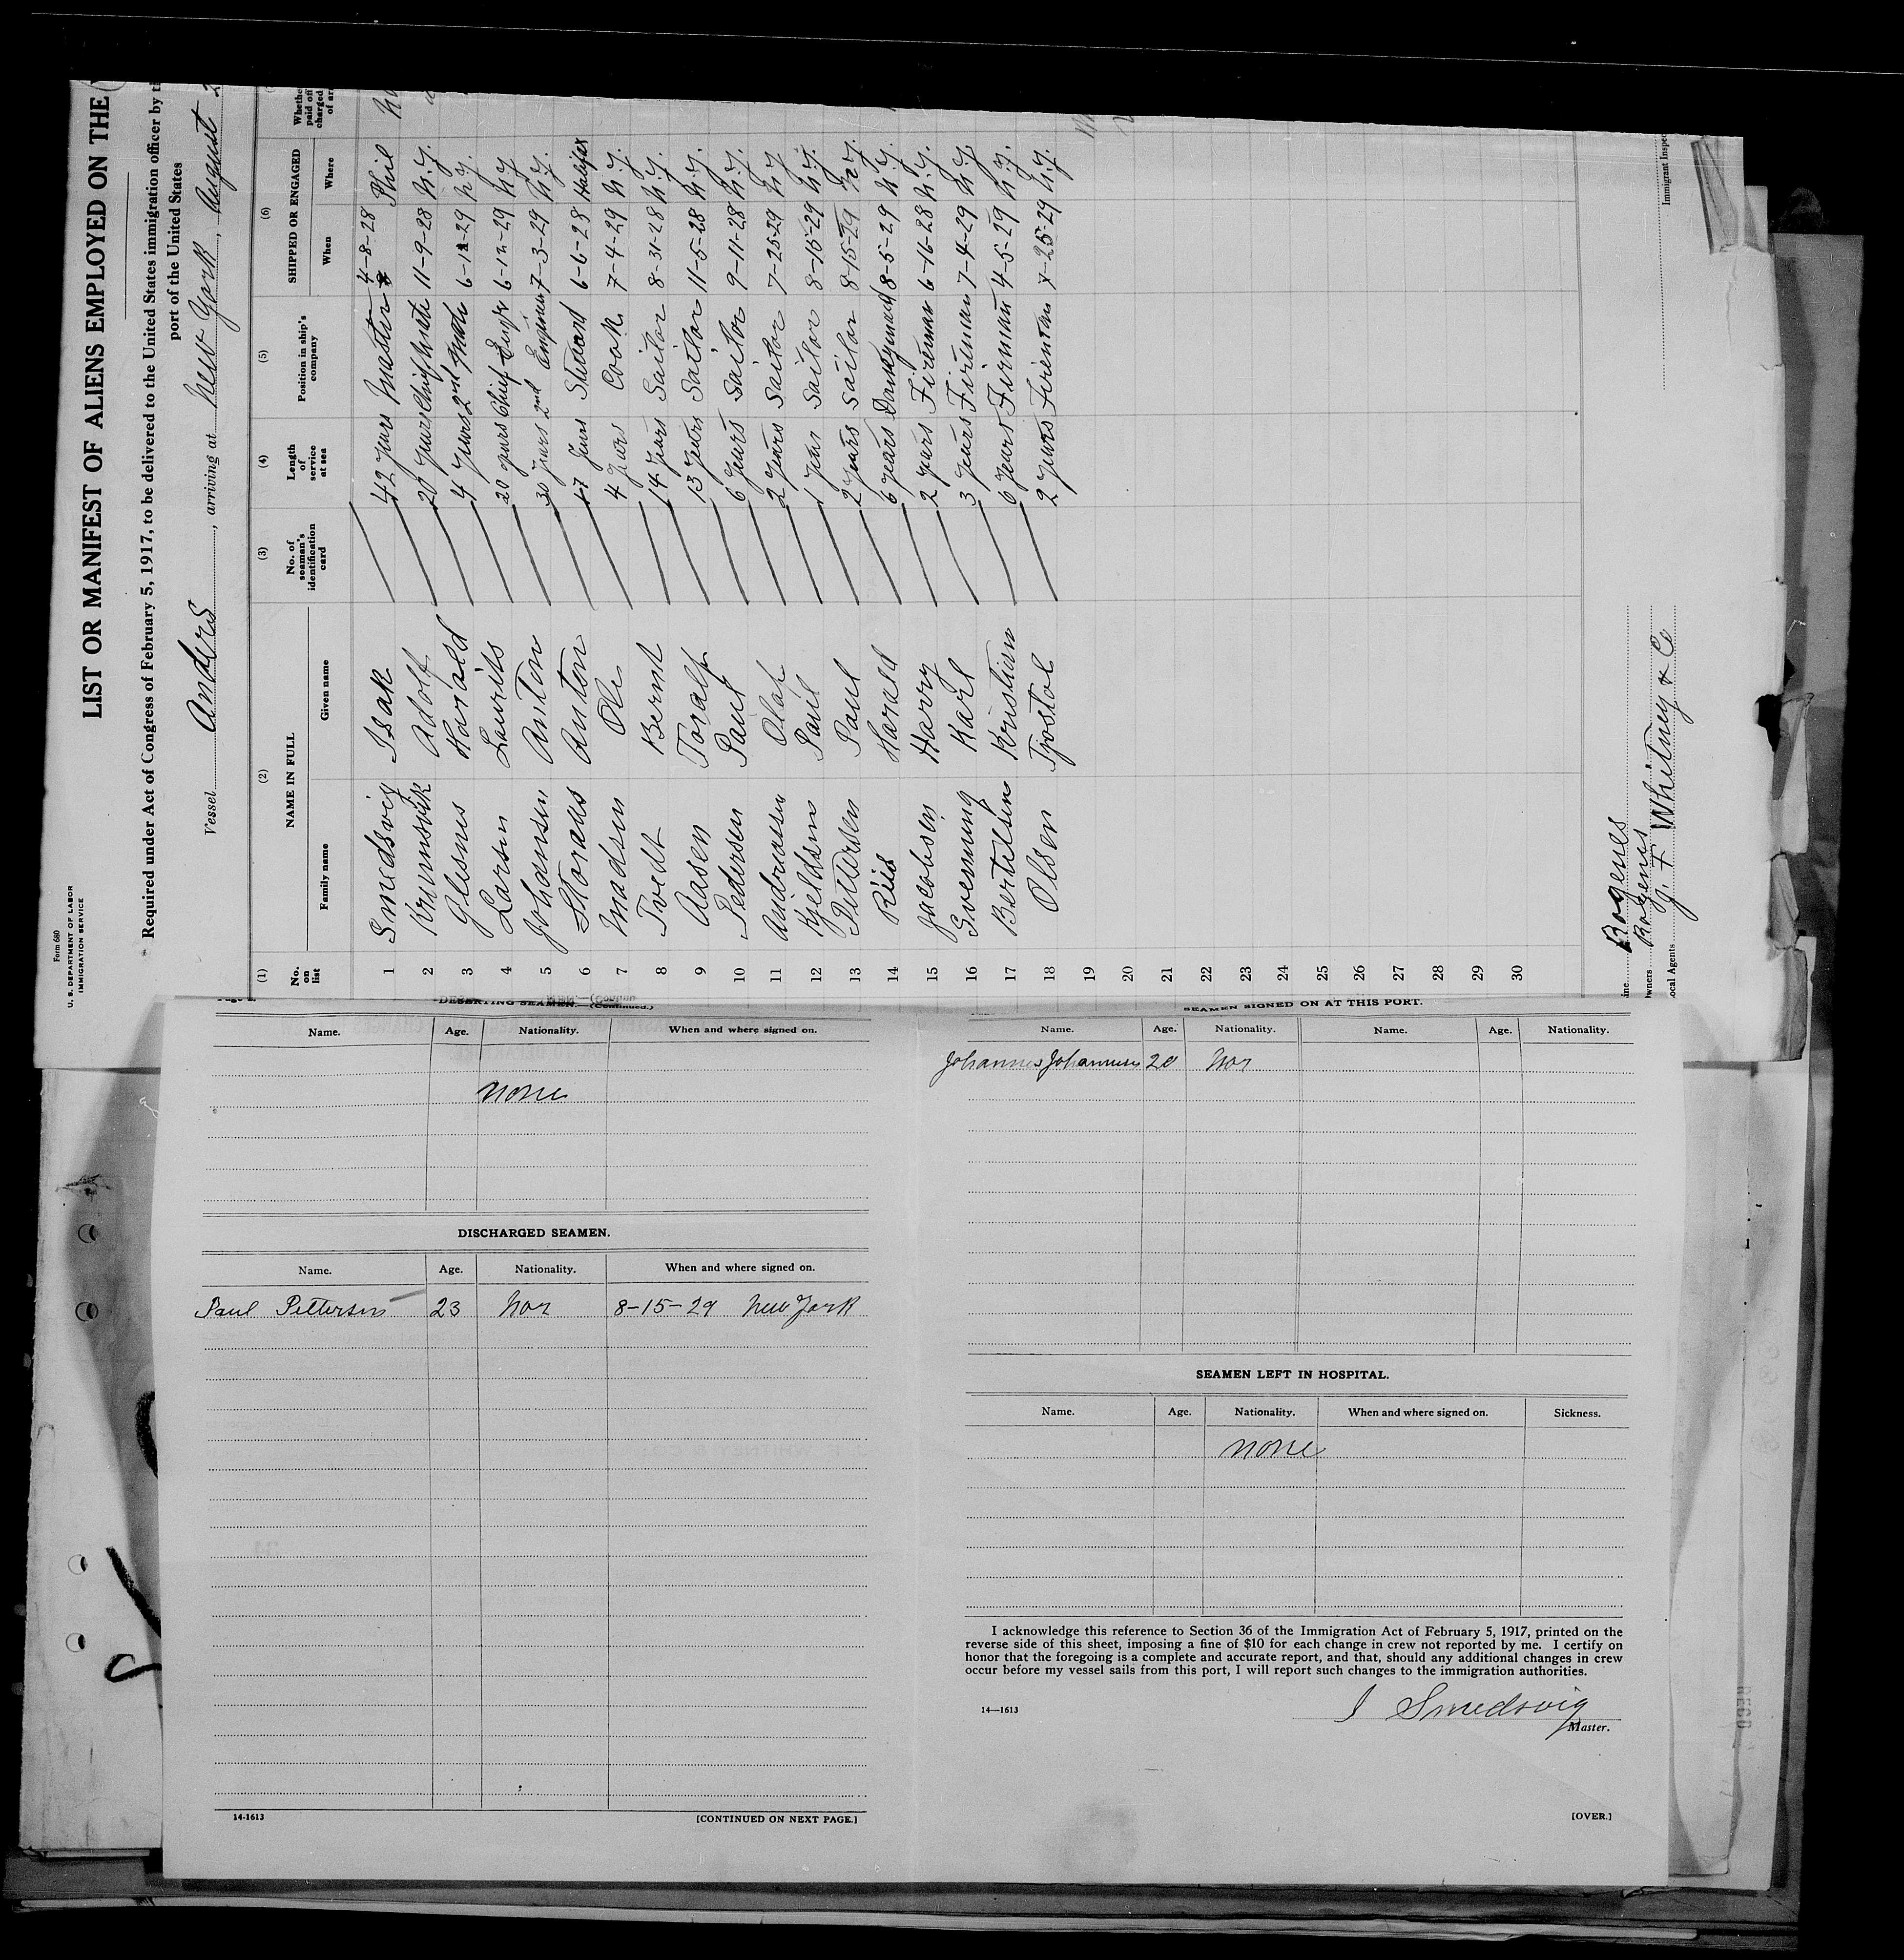 Form 680
U. S. DEPARTMENT OF LABOR
IMMIGRATION SERVICE
LIST OR MANIFEST OF ALIENS EMPLOYED ON THE
Required under Act of Congress of February 5, 1917, to be delivered to the United States immigration officer by
port of the United States
Vessel Anders, arriving at New York, August
(1) (2) (3) (4) (5) (6)
No. on list NAME IN FULL No. of seaman's identification card Length of service at sea Position in ship's company SHIPPED OR ENGAGED
Family name Given name When Where
1 Smedsvig Isak 42 years Master 4-8-28 Phil
2 Krumsvik Adolf 20 years Chief Mate 11-9-28 N.Y.
3 Glesnes Harald 4 years 2nd Mate 6-12-29 N.Y.
4 Larsen Laurits 20 years Chief Engr 6-12-29 N.Y.
5 Johansen Anton 30 years 2nd Engineer 7-3-29 N.Y.
6 Anton 17 years Steward 6-6-28 Halifax
7 Madsen Ole 4 years Cook 7-4-29 N.Y.
8 Tvedt Bernt 14 years Sailor 8-31-28 N.Y.
9 Aasen Toralf 13 years Sailor 11-5-28 N.Y.
10 Pedersen Paul 6 years Sailor 9-11-28 N.Y.
11 Andreassen Olaf 2 years Sailor 7-25-29 N.Y.
12 Kjeldsen Paul 1 year Sailor 8-15-29 N.Y.
13 Pettersen Paul 2 years Sailor 8-15-29 N.Y.
14 Riis Harald 6 years Donkeyman 8-5-29 N.Y.
15 Jacobsen Harry 2 years Fireman 6-16-28 N.Y.
16 Karl 3 years Fireman 7-4-29 N.Y.
17 Bertelsen Kristian 6 years Fireman 4-5-29 N.Y.
18 Olsen Tjostol 2 years Fireman 7-25-29 N.Y.
19
20
21
22
23
24
25
26
27
28
29
30
Rogenes
Owners Rogenes
Local Agents J. F. Whitney & Co
Immigrant Inspec
DESERTING SEAMEN.—(Continued.)
Name. Age. Nationality. When and where signed on.
None
DISCHARGED SEAMEN.
Name. Age. Nationality. When and where signed on.
Paul Pettersen 23 Nor 8-15-29 New York
14-1613 [CONTINUED ON NEXT PAGE.]
SEAMEN SIGNED ON AT THIS PORT.
Name. Age. Nationality. Name. Age. Nationality.
Johannes Johannesen 20 Nor
SEAMEN LEFT IN HOSPITAL.
Name. Age. Nationality. When and where signed on. Sickness.
None
I acknowledge this reference to Section 36 of the Immigration Act of February 5, 1917, printed on the
reverse side of this sheet, imposing a fine of $10 for each change in crew not reported by me. I certify on
honor that the foregoing is a complete and accurate report, and that, should any additional changes in crew
occur before my vessel sails from this port, I will report such changes to the immigration authorities.
14—1613
I Smedsvig
Master.
[OVER.]